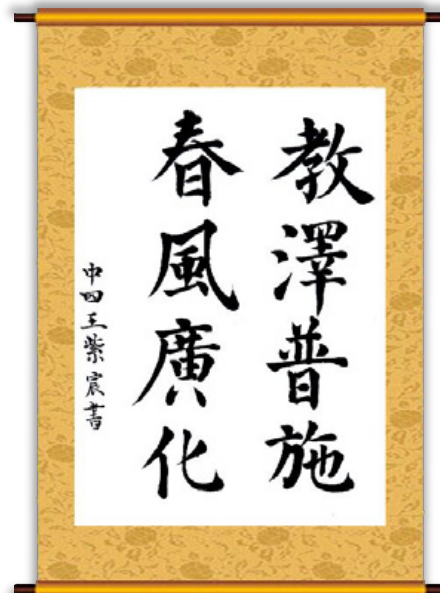 教澤普施
春風廣化
中四王紫宸書